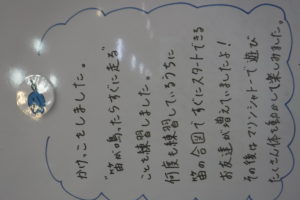 かけっこをしました。
"笛が鳴ったらすぐに走る"
ことを練習しました。
何度も練習しているうちに
笛の合図ですぐにスタートできる
お友達が増えてましたよ!
その後はマリンシャトーで遊び
たくさん体を動かして楽しみました。